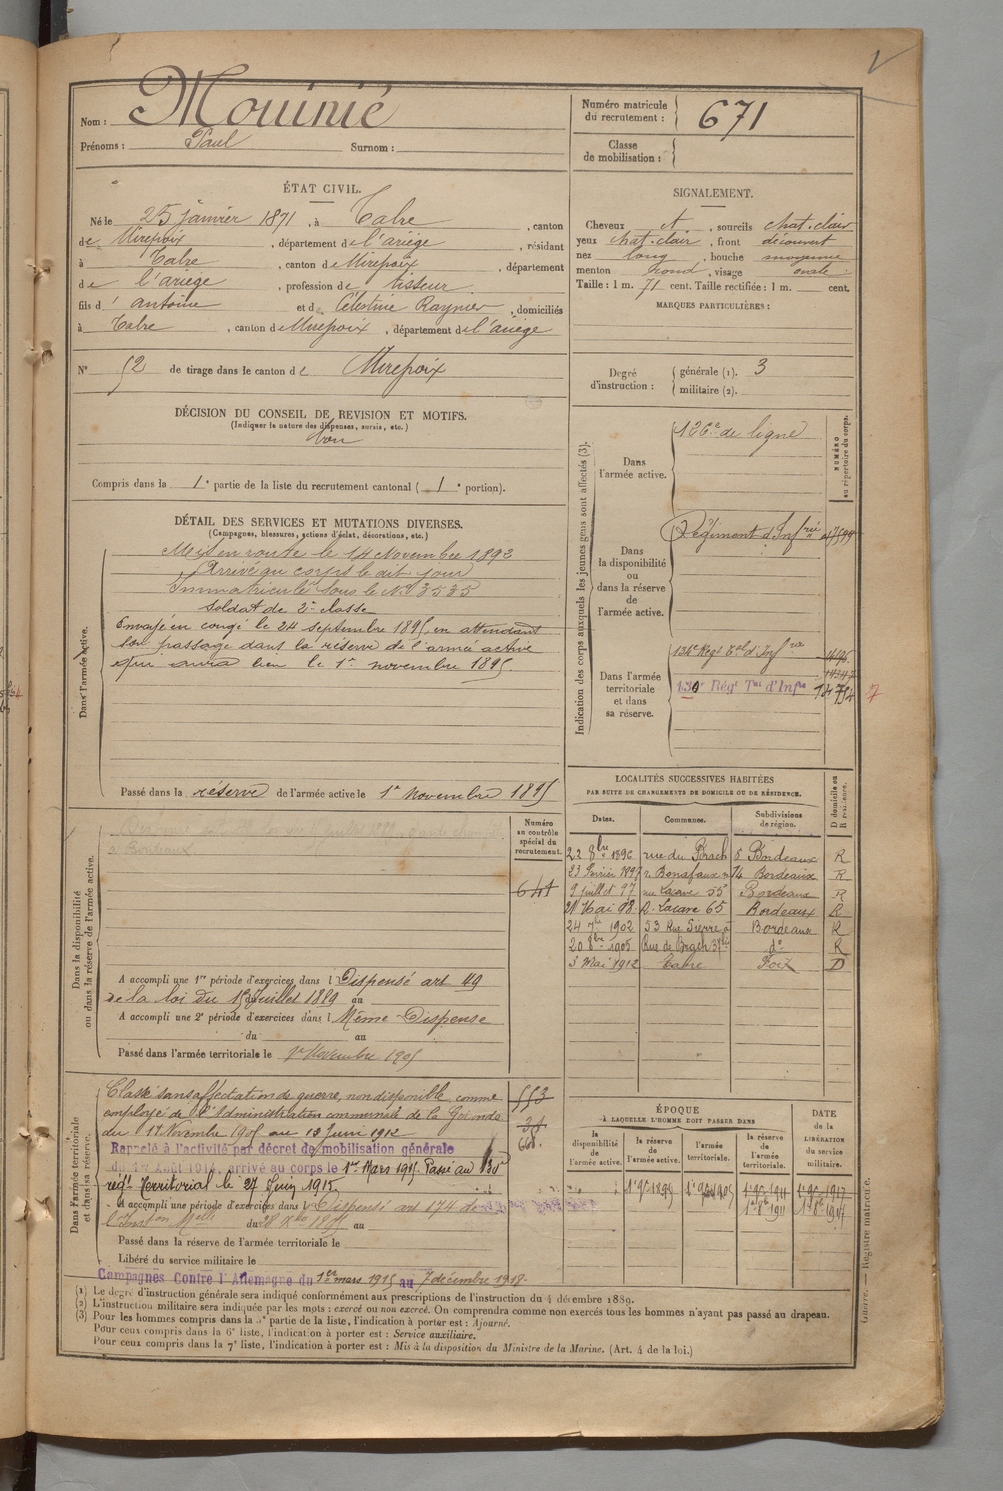 Nom : Mouinié
Prénoms : Paul Surnom :
Numéro matricule du recrutement : 671
Classe de mobilisation :
ÉTAT CIVIL.
Né le 25 janvier 1871, à Tabre, canton
de Mirepoix, département de l'ariège, résidant
à Tabre, canton de Mirepoix, département
de l'ariège, profession de tisseur
fils d' antoine et de Célestine Raynier, domiciliés
à Tabre, canton de Mirepoix, département de l'ariège
N° 52 de tirage dans le canton de Mirepoix
DÉCISION DU CONSEIL DE REVISION ET MOTIFS.
(Indiquer la nature des dispenses, sursis, etc.)
bon
Compris dans la 1e partie de la liste du recrutement cantonal (1e portion).
DÉTAIL DES SERVICES ET MUTATIONS DIVERSES.
(Campagnes, blessures, actions d'éclat, décorations, etc.)
Dans l'armée active.
Mis en route le 14 Novembre 1892
Arrivé au corps le dit jour
Immatriculé sous le N° 3535
Soldat de 2e classe
Envoyé en congé le 24 septembre 1895, en attendant
son passage dans la réserve de l'armée active
qui aura lieu le 1er novembre 1895
Passé dans la réserve de l'armée active le 1er Novembre 1895
Numéro au contrôle spécial du recrutement.
Dans la disponibilité ou dans la réserve de l'armée active.
à Bordeaux
641
A accompli une 1re période d'exercices dans l Dispensé art 49
de la loi du 15 Juillet 1889 au
A accompli une 2e période d'exercices dans l Même Dispense
du au
Passé dans l'armée territoriale le 1er Novembre 1905
Dans l'armée territoriale et dans sa réserve.
Classé sans affectation de guerre, non disponible, comme
employé de l'Administration communale de la Gironde
du 11 Novembre 1905 au 13 Juin 1912
553
668.
Rappelé à l'activité par décret de mobilisation générale
du 1er Août 1914, arrivé au corps le 1er Mars 1915 Passé au 130e
régt Territorial le 27 Juin 1915
A accompli une période d'exercices dans l Dispensé art 174 de
du au
Passé dans la réserve de l'armée territoriale le
Libéré du service militaire le
Campagnes Contre l'Allemagne du 1er mars 1915 au 7 décembre 1918.
SIGNALEMENT.
Cheveux, sourcils chat. clair
yeux chat. clair, front découvert
nez long, bouche moyenne
menton rond, visage ovale
Taille : 1 m. 71 cent. Taille rectifiée : 1 m. cent.
MARQUES PARTICULIÈRES :
Degré d'instruction : générale (1). 3
militaire (2).
Indication des corps auxquels les jeunes gens sont affectés (3).
NUMÉRO au répertoire du corps.
Dans l'armée active. 126e de ligne
Dans la disponibilité ou dans la réserve de l'armée active.
Régiment d'Infrie
Dans l'armée territoriale et dans sa réserve.
134e Régt Tal d'Infie
130e Régt Tal d'Infie 14754 7
LOCALITÉS SUCCESSIVES HABITÉES
PAR SUITE DE CHANGEMENTS DE DOMICILE OU DE RÉSIDENCE.
Dates. Communes. Subdivisions de région. D domicile ou R résidence.
22 8bre 1896 rue du 8 Bordeaux R
23 Février 1897 r. Bonafoux n° 14 Bordeaux R
9 juillet 97 rue Lacave 55 Bordeaux R
21 Mai 98. R. Lacave 65 Bordeaux R
24 7bre 1902 53 Rue Bordeaux R
20 8bre 1905 Rue de d° R
3 Mai 1912 Tabre Foix D
ÉPOQUE
À LAQUELLE L'HOMME DOIT PASSER DANS
la disponibilité de l'armée active. la réserve de l'armée active. l'armée territoriale. la réserve de l'armée territoriale.
DATE de la LIBÉRATION du service militaire.
(1) Le degré d'instruction générale sera indiqué conformément aux prescriptions de l'instruction du 4 décembre 1889.
(2) L'instruction militaire sera indiquée par les mots : exercé ou non exercé. On comprendra comme non exercés tous les hommes n'ayant pas passé au drapeau.
(3) Pour les hommes compris dans la 5e partie de la liste, l'indication à porter est : Ajourné.
Pour ceux compris dans la 6e liste, l'indication à porter est : Service auxiliaire.
Pour ceux compris dans la 7e liste, l'indication à porter est : Mis à la disposition du Ministre de la Marine. (Art. 4 de la loi.)
Guerre. — Registre matricule.